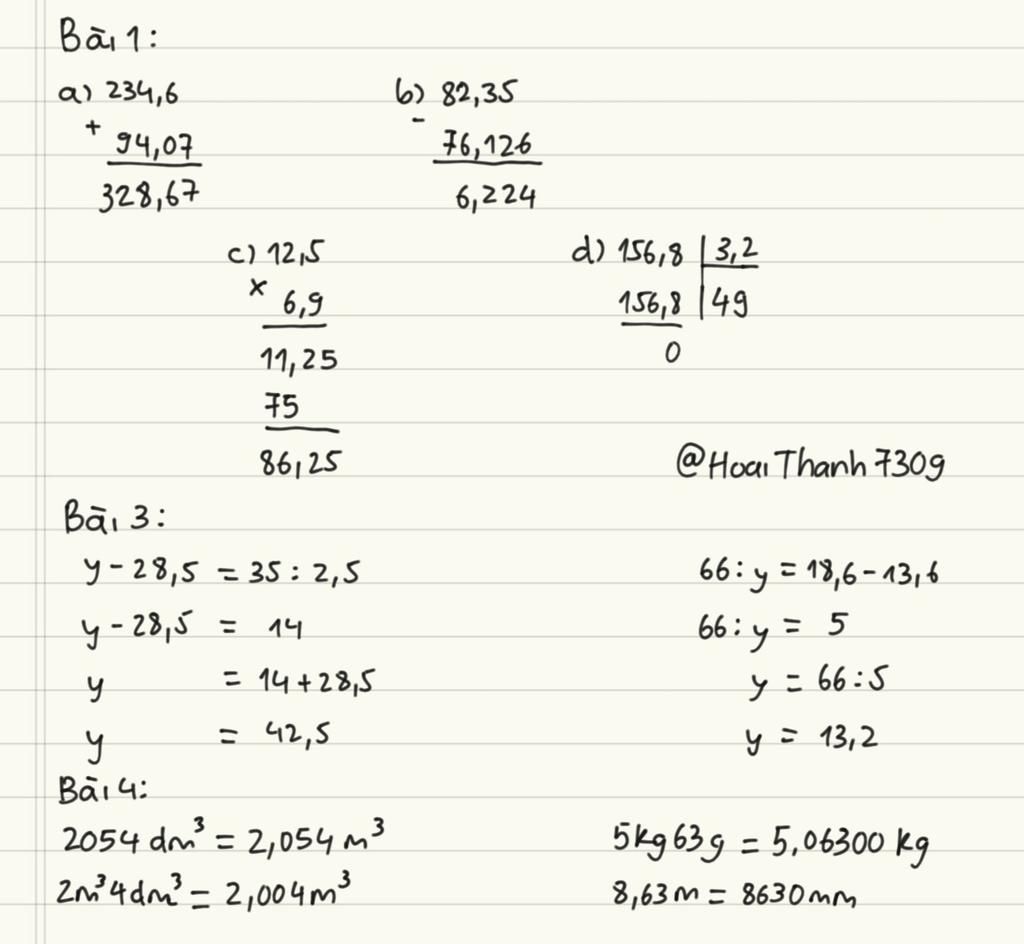 Bài 1:
a) 234,6 b) 82,35
+ -
94,07 76,126
328,67 6,224
c) 12,5 d) 156,8 3,2
x 6,9 156,8 49
11,25 0
75
86,25 @HoaiThanh7309
Bài 3:
y - 28,5 = 35 : 2,5 66 : y = 18,6 - 13,6
y - 28,5 = 14 66 : y = 5
y = 14 + 28,5 y = 66 : 5
y = 42,5 y = 13,2
Bài 4:
2054 dm³ = 2,054 m³ 5kg 63g = 5,06300 kg
2m³ 4dm³ = 2,004 m³ 8,63 m = 8630 mm